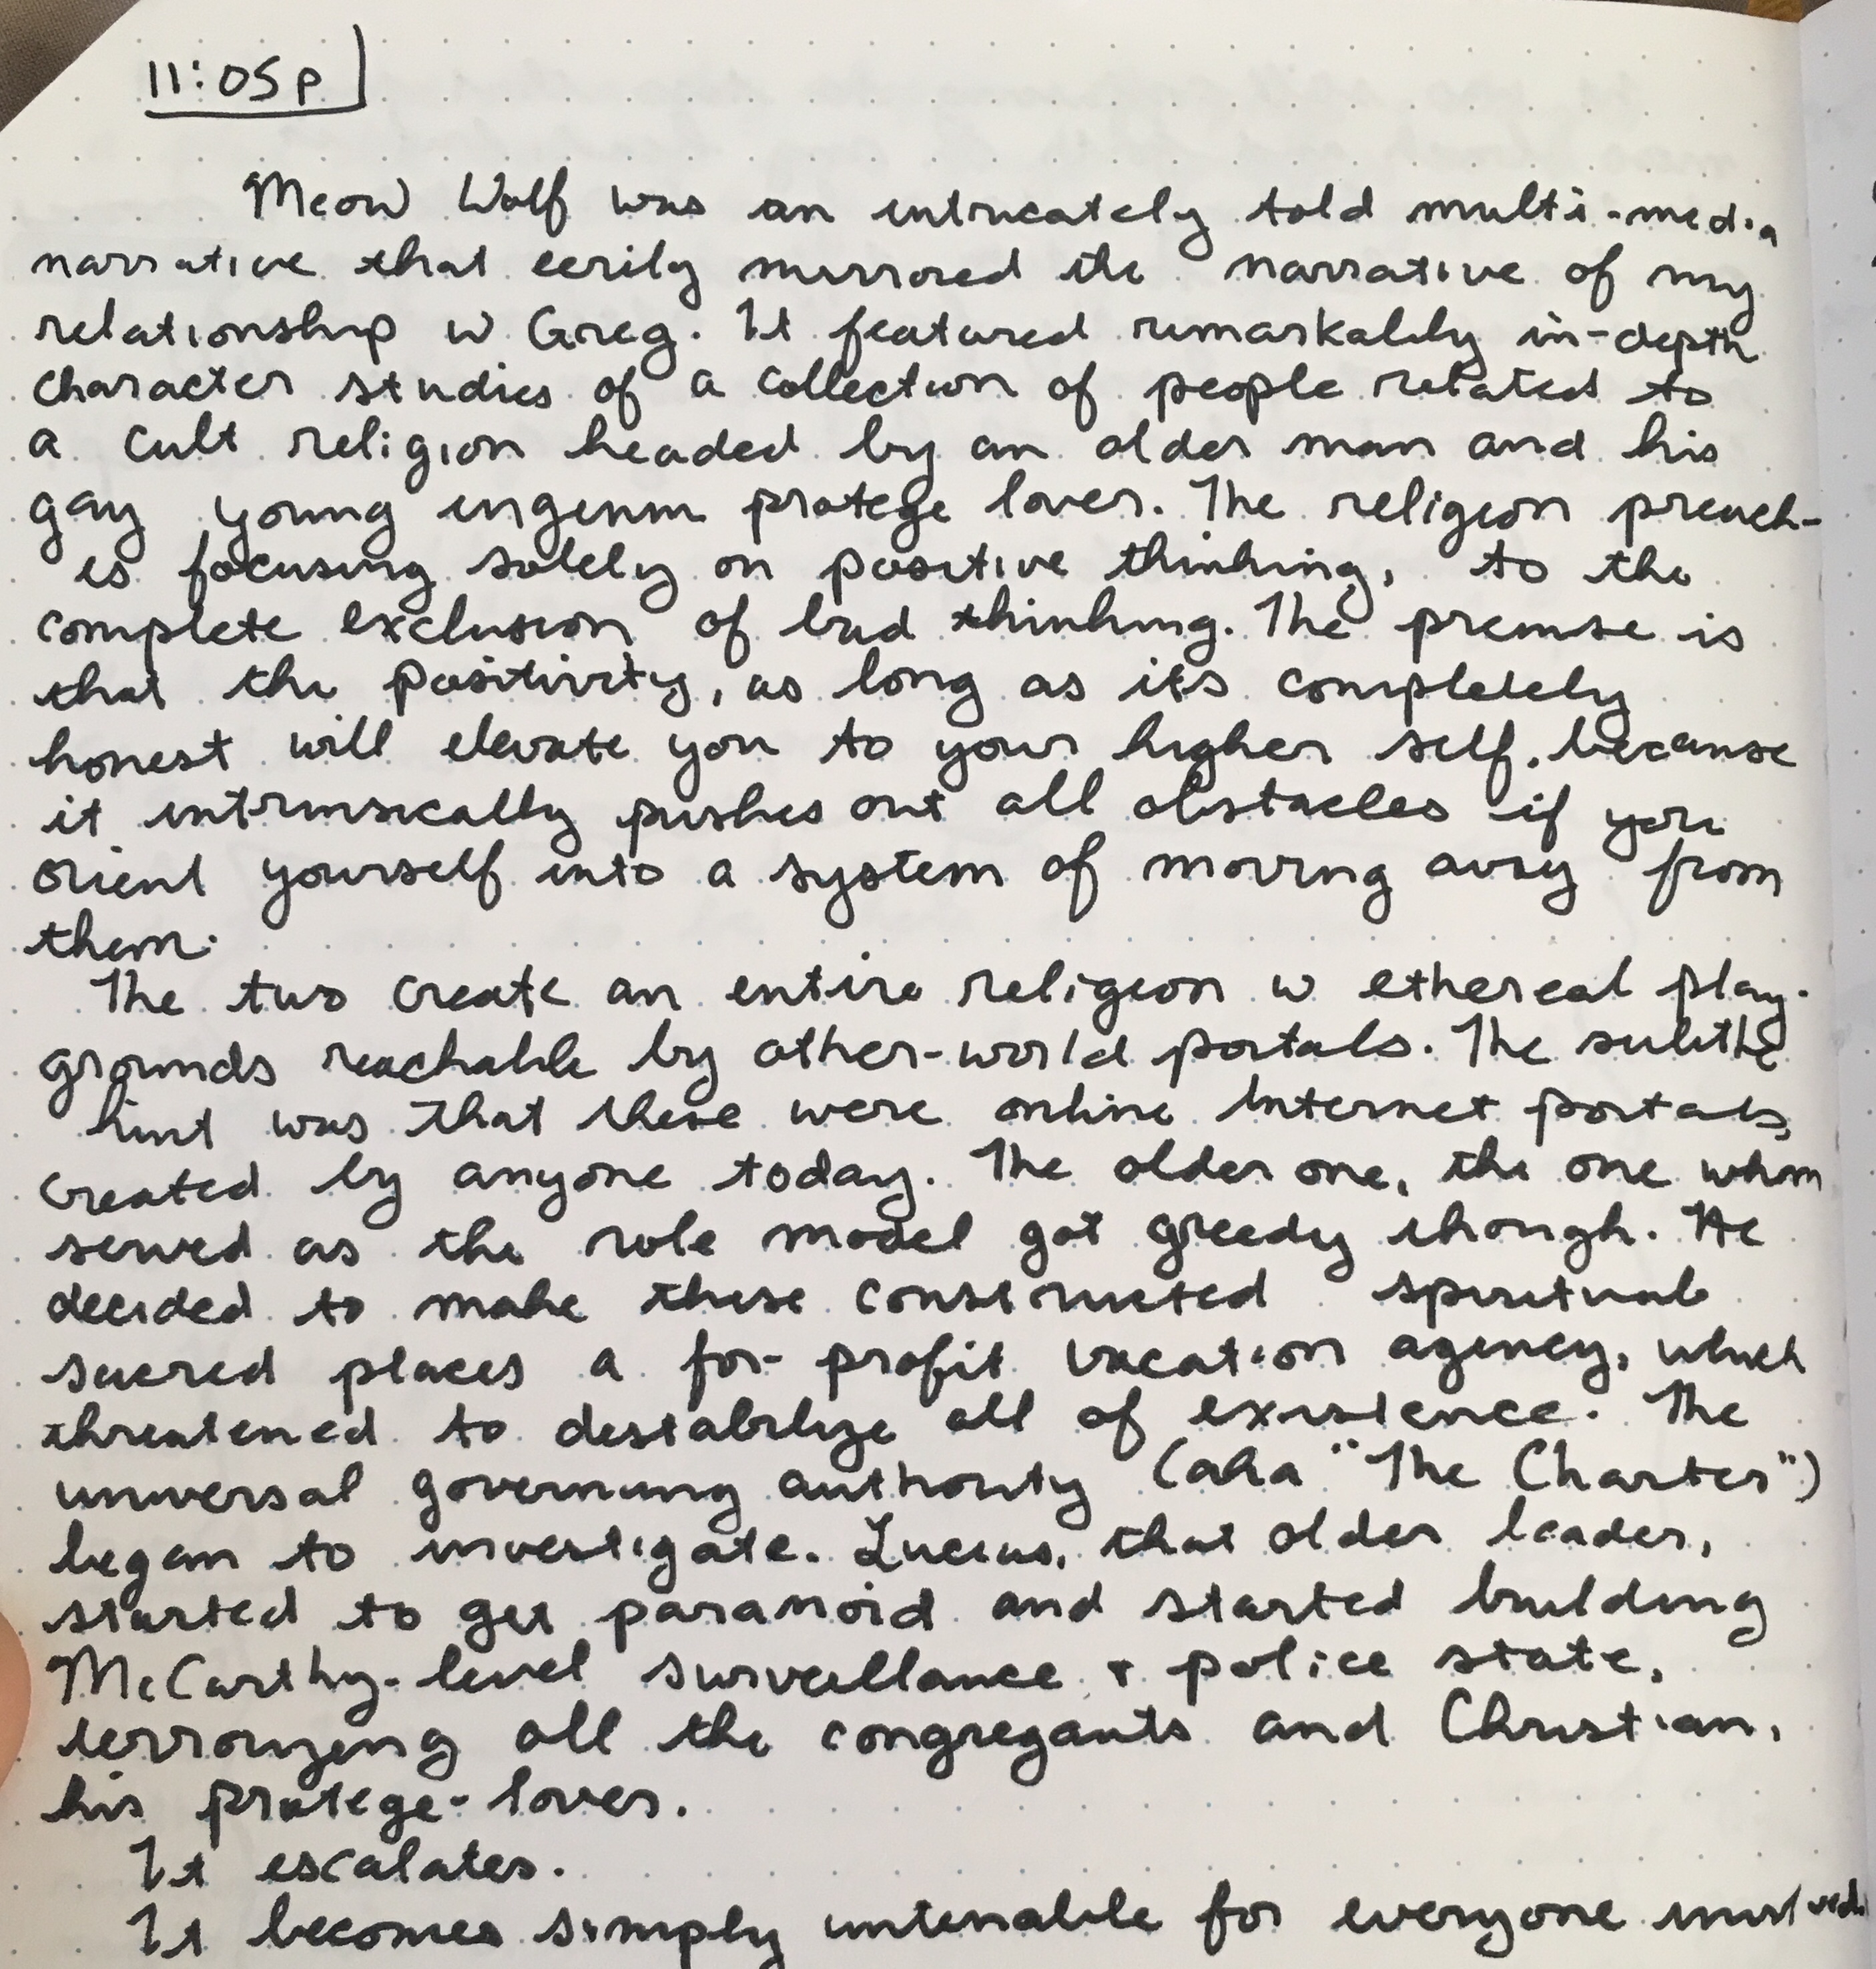 11:05p
Meow Wolf was an intricately told multi-media
narrative that eerily mirrored the narrative of my
relationship w Greg. It featured remarkably in-depth
character studies of a collection of people related to
a cult religion headed by an older man and his
gay young ingenu protege lover. The religion preach-
es focusing solely on positive thinking, to the
complete exclusion of bad thinking. The premise is
that the positivity, as long as its completely
honest will elevate you to your higher self, because
it intrinsically pushes out all obstacles if you
orient yourself into a system of moving away from
them.
The two create an entire religion w ethereal play-
grounds reachable by other-world portals. The subtle
hint was that these were online Internet portals,
created by anyone today. The older one, the one whom
served as the role model got greedy though. He
decided to make these constructed spiritual
sacred places a for-profit vacation agency, which
threatened to destabilize all of existence. The
universal governing authority (aka "The Charter")
began to investigate. Lucius, that older leader,
started to get paranoid and started building
McCarthy-level surveillance + police state,
terrorizing all the congregants and Christian,
his protege-lover.
It escalates.
It becomes simply untenable for everyone involved.